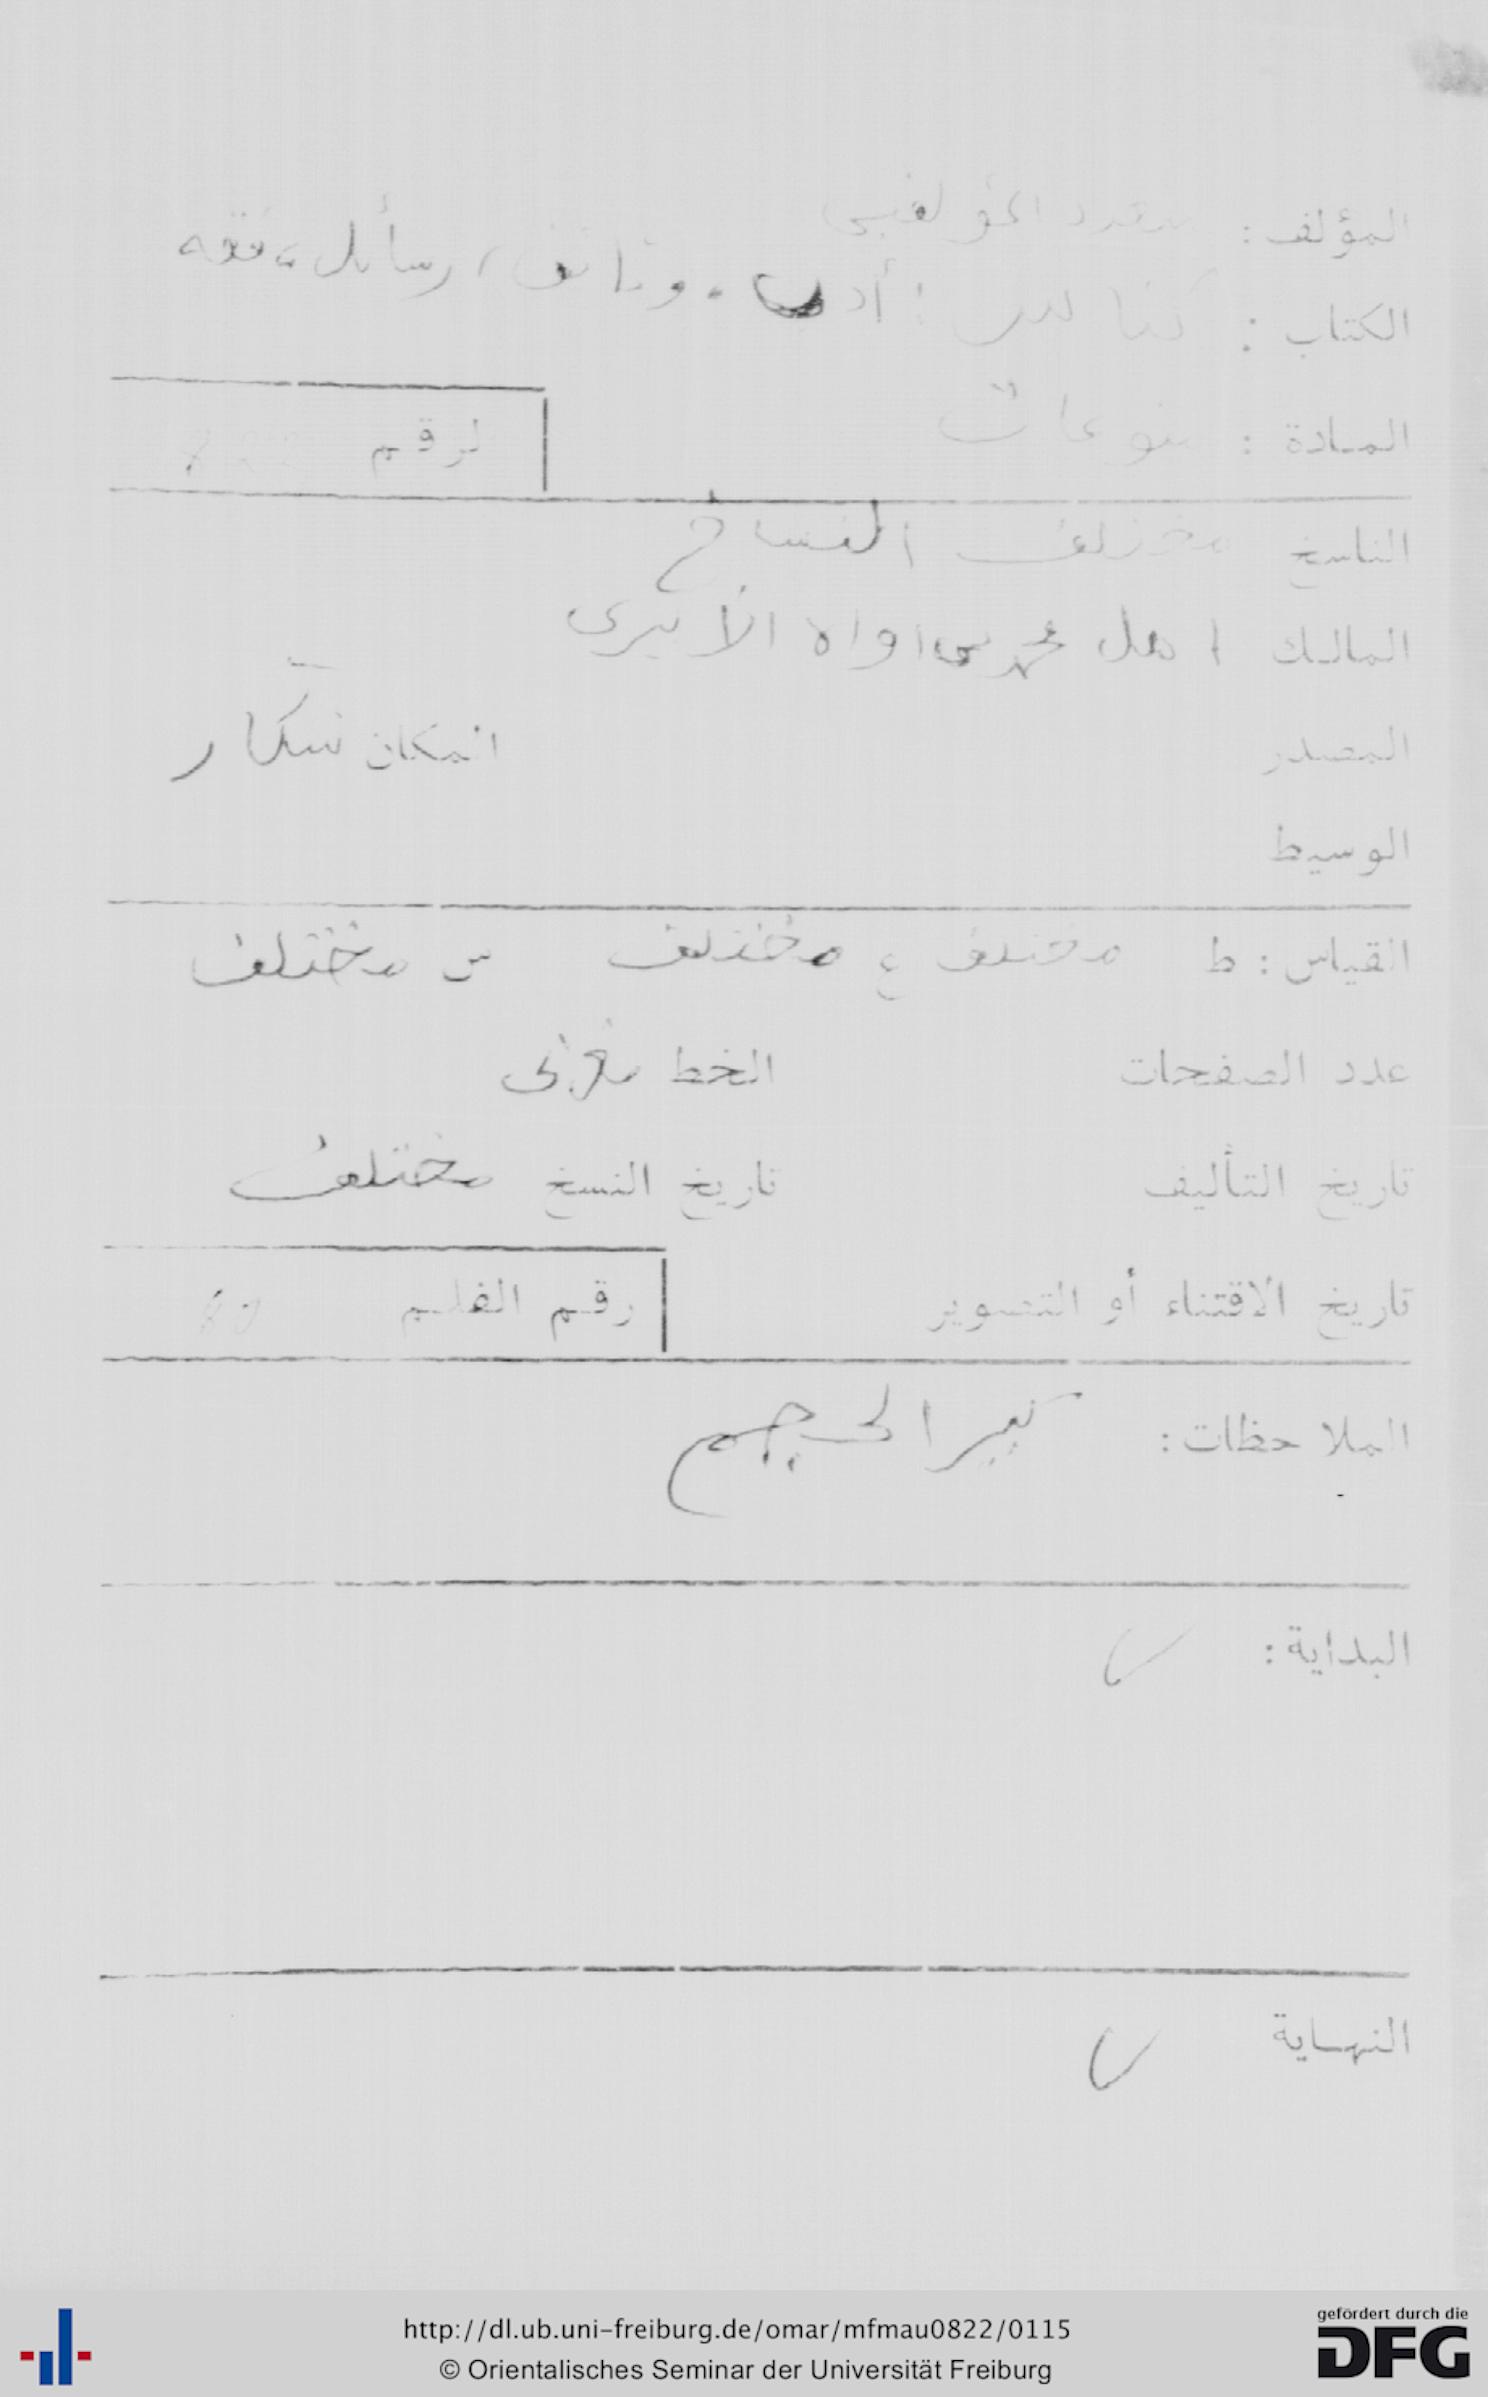 المؤلف : متعدد المؤلفين
الكتاب : كناش : أدب ، وثائق ، رسائل ، فقه
المادة : منوعات الرقم
الناسخ مختلف النساخ
المالك اهل محمد اواه الأبيرى
المصدر المكان تنكار
الوسيط
القياس : ط مختلف ع مختلف س مختلف
عدد الصفحات الخط مغربى
تاريخ التأليف تاريخ النسخ مختلف
تاريخ الاقتناء أو التصوير رقم الفلم
الملاحظات : كبير الحجم
البداية :
النهاية
http://dl.ub.uni-freiburg.de/omar/mfmau0822/0115
© Orientalisches Seminar der Universität Freiburg
gefördert durch die
DFG